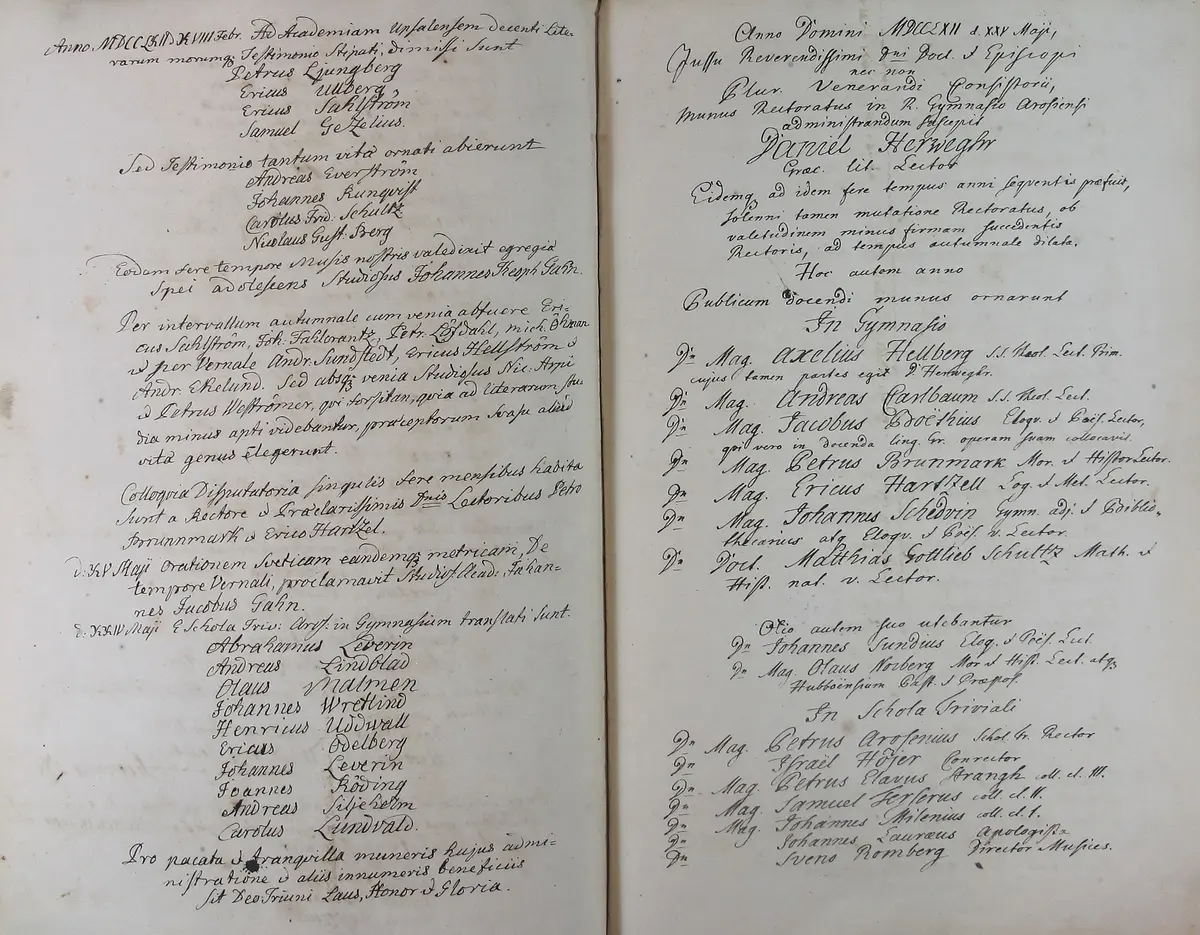 Anno MDCCLXII d. XVIII Febr. Ad Academiam Upsalensem decenti Lite-
rarum morumq; Testimonio stipati, dimissi sunt
Petrus Ljungberg
Ericus Ullberg,
Ericus Sahlström
Samuel Gezelius.
Sed Testimonio tantum vitæ ornati abierunt
Andreas Everström
Johannes Runqvist
Carolus Frid. Schultz
Nicolaus Gust. Berg
Eodem fere tempore Musis nostris valedixit egregiæ
Spei adolescens Studiosus Johannes Theoph Gahn.
Per intervallum autumnale cum venia abfuere Eri-
cus Sahlström, Joh. Fahlcrantz, Petr. Löfdahl, Mich. Öhman
& per Vernale Andr. Sundstedt, Ericus Hellström &
Andr. Ekelund. Sed absq; venia Studiosus Nic. Arpi
& Petrus Weströmer, qui forsitan, quia ad literarum stu-
dia minus apti videbantur, præceptorum svasu aliud
vitæ genus elegerunt.
Colloqvia Disputatoria singulis fere mensibus habita
sunt a Rectore & Præclarissimis Dnis Lectoribus Petro
Brunnmark & Erico Hartzel.
d. XV Maji Orationem Sveticam eandemq; metricam, De
tempore Vernali, proclamavit Studios. Acad. Johan-
nes Jacobus Gahn.
d. XXIV Maji E Schola Triv. Aros. in Gymnasium translati sunt.
Abrahamus Leverin
Andreas Lindblad
Olaus Malmen
Johannes Wretlind
Henricus Uddwall
Ericus Odelberg
Johannes Leverin
Joannes Röding
Andreas Siljeholm
Carolus Lundvald.
Pro pacata & tranqvilla muneris hujus admi-
nistratione & aliis innumeris beneficiis
sit Deo Triuni Laus, Honor & Gloria.
Anno Domini MDCCLXII d. XXV Maji,
Jussu Reverendissimi Dni Doct. & Episcopi
nec non
Plur. Venerandi Consistorii,
munus Rectoratus in R. Gymnasio Arosiensi
administrandum suscepit
Daniel Herweghr
Græc. lit. Lector
Eidemq; ad idem fere tempus anni seqventis præfuit,
solenni tamen mutatione Rectoratus, ob
valetudinem minus firmam succedentis
Rectoris, ad tempus autumnale dilata.
Hoc autem anno
Publicum docendi munus ornarunt
In Gymnasio
Dn Mag. Axelius Hellberg S.S. Theol. Lect. Prim.
cujus tamen partes egit D. Herweghr.
Dn Mag. Andreas Carlbaum S.S. Theol. Lect.
Dn Mag. Jacobus Boëthius Eloqv. & Poës. Lector,
qui vero in docenda ling. Gr. operam suam collocavit.
Dn Mag. Petrus Brunmark Mor. & Histor Lector.
Dn Mag. Ericus Hartzell Log. & Met. Lector.
Dn Mag. Johannes Schedvin Gymn. adj. & Biblio-
thecarius atq Eloqv. & Poës. v. Lector.
Dn Doct. Matthias Gottlieb Schultz Math. &
Hist. nat. v. Lector.
Otio autem suo utebantur
Dn Johannes Sundius Eloq. & Poës. Lect
Dn Mag. Olaus Norberg Mor & Hist. Lect. atq;
Hubboënsium Past. & Præpos.
In Schola Triviali
Dn Mag. Petrus Arosenius Schol tr. Rector
Dn Israel Höjer Conrector
Dn Mag. Petrus Elavus Strangh coll. cl. III.
Dn Mag. Samuel Ferserus coll. cl. II.
Dn Mag. Johannes Milenius coll. cl. I.
Dn Johannes Lauræus Apologista
Dn Sveno Romberg Director Musices.